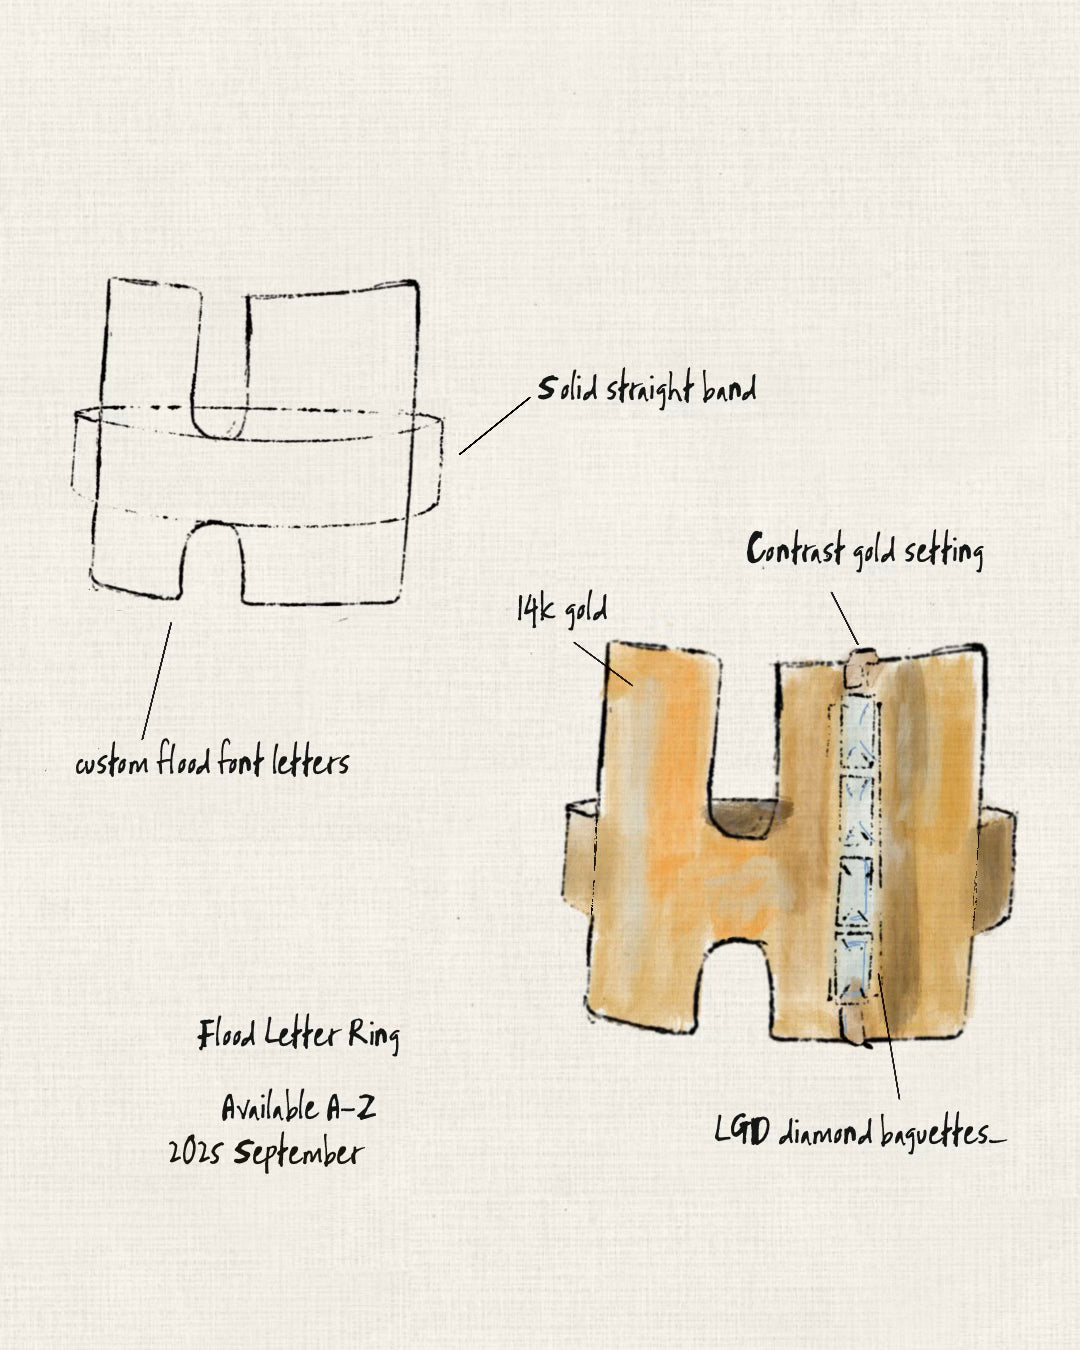 Solid straight band
Contrast gold setting
14k gold
custom flood font letters
Flood Letter Ring
Available A-Z
2025 September
LGD diamond baguettes_